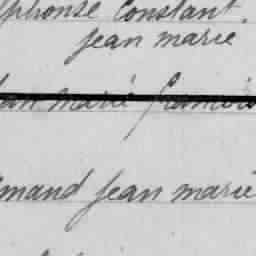 lphonse Constant.
Jean marie
ean marie francois
mand Jean marie